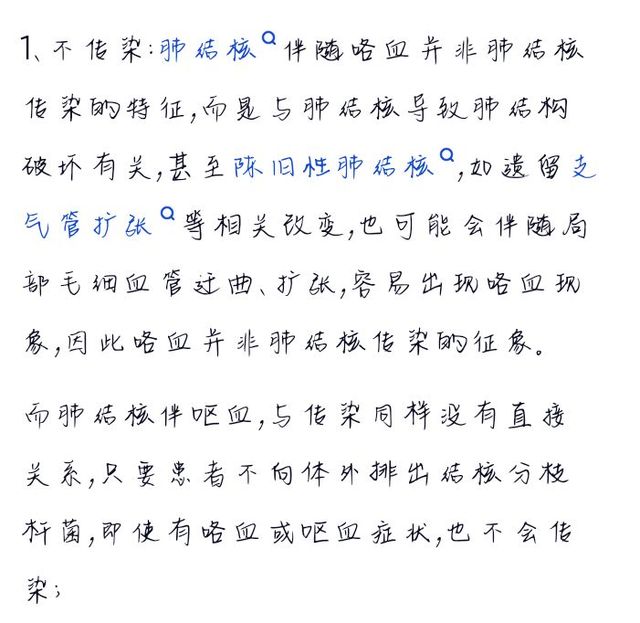 1、不传染:肺结核伴随咯血并非肺结核
传染的特征,而是与肺结核导致肺结构
破坏有关,甚至陈旧性肺结核,如遗留支
气管扩张等相关改变,也可能会伴随局
部毛细血管迂曲、扩张,容易出现咯血现
象,因此咯血并非肺结核传染的征象。
而肺结核伴呕血,与传染同样没有直接
关系,只要患者不向体外排出结核分枝
杆菌,即使有咯血或呕血症状,也不会传
染;